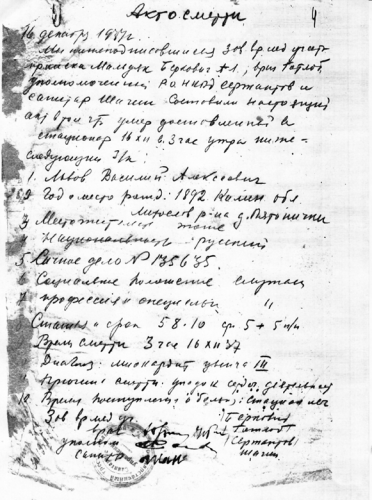 Акт о смерти
4
16 декабря 1937 г.
Мы нижеподписавшиеся Зав врмед участ
Беркович А.Л., врач
уполномоченный РО НКВД Сержантов и
санитар Шагин составили настоящий
акт в том что умер доставленный в
стационар 16 XII в 3 часа утра ниже-
следующий з/к
1. Львов Василий Алексеевич
2 Год и место рожд: 1892 Калин обл.
р-на д. Пятонички
3 Местожит.
4 Национальность: русский
5 Личное дело № 135635.
6 Социальное положение служащ
7 профессия и специальн "
8 Статья и срок 58-10 ср 5+5 п/п
Время смерти 3 часа 16 XII 37
Диагноз: миокардит цынга III
Причина смерти: упадок сердеч. деятельнос
10 Время поступления в больн; стационар
Зав врмед уч (Беркович)
врач
уполном (Сержантов)
санитар Шагин